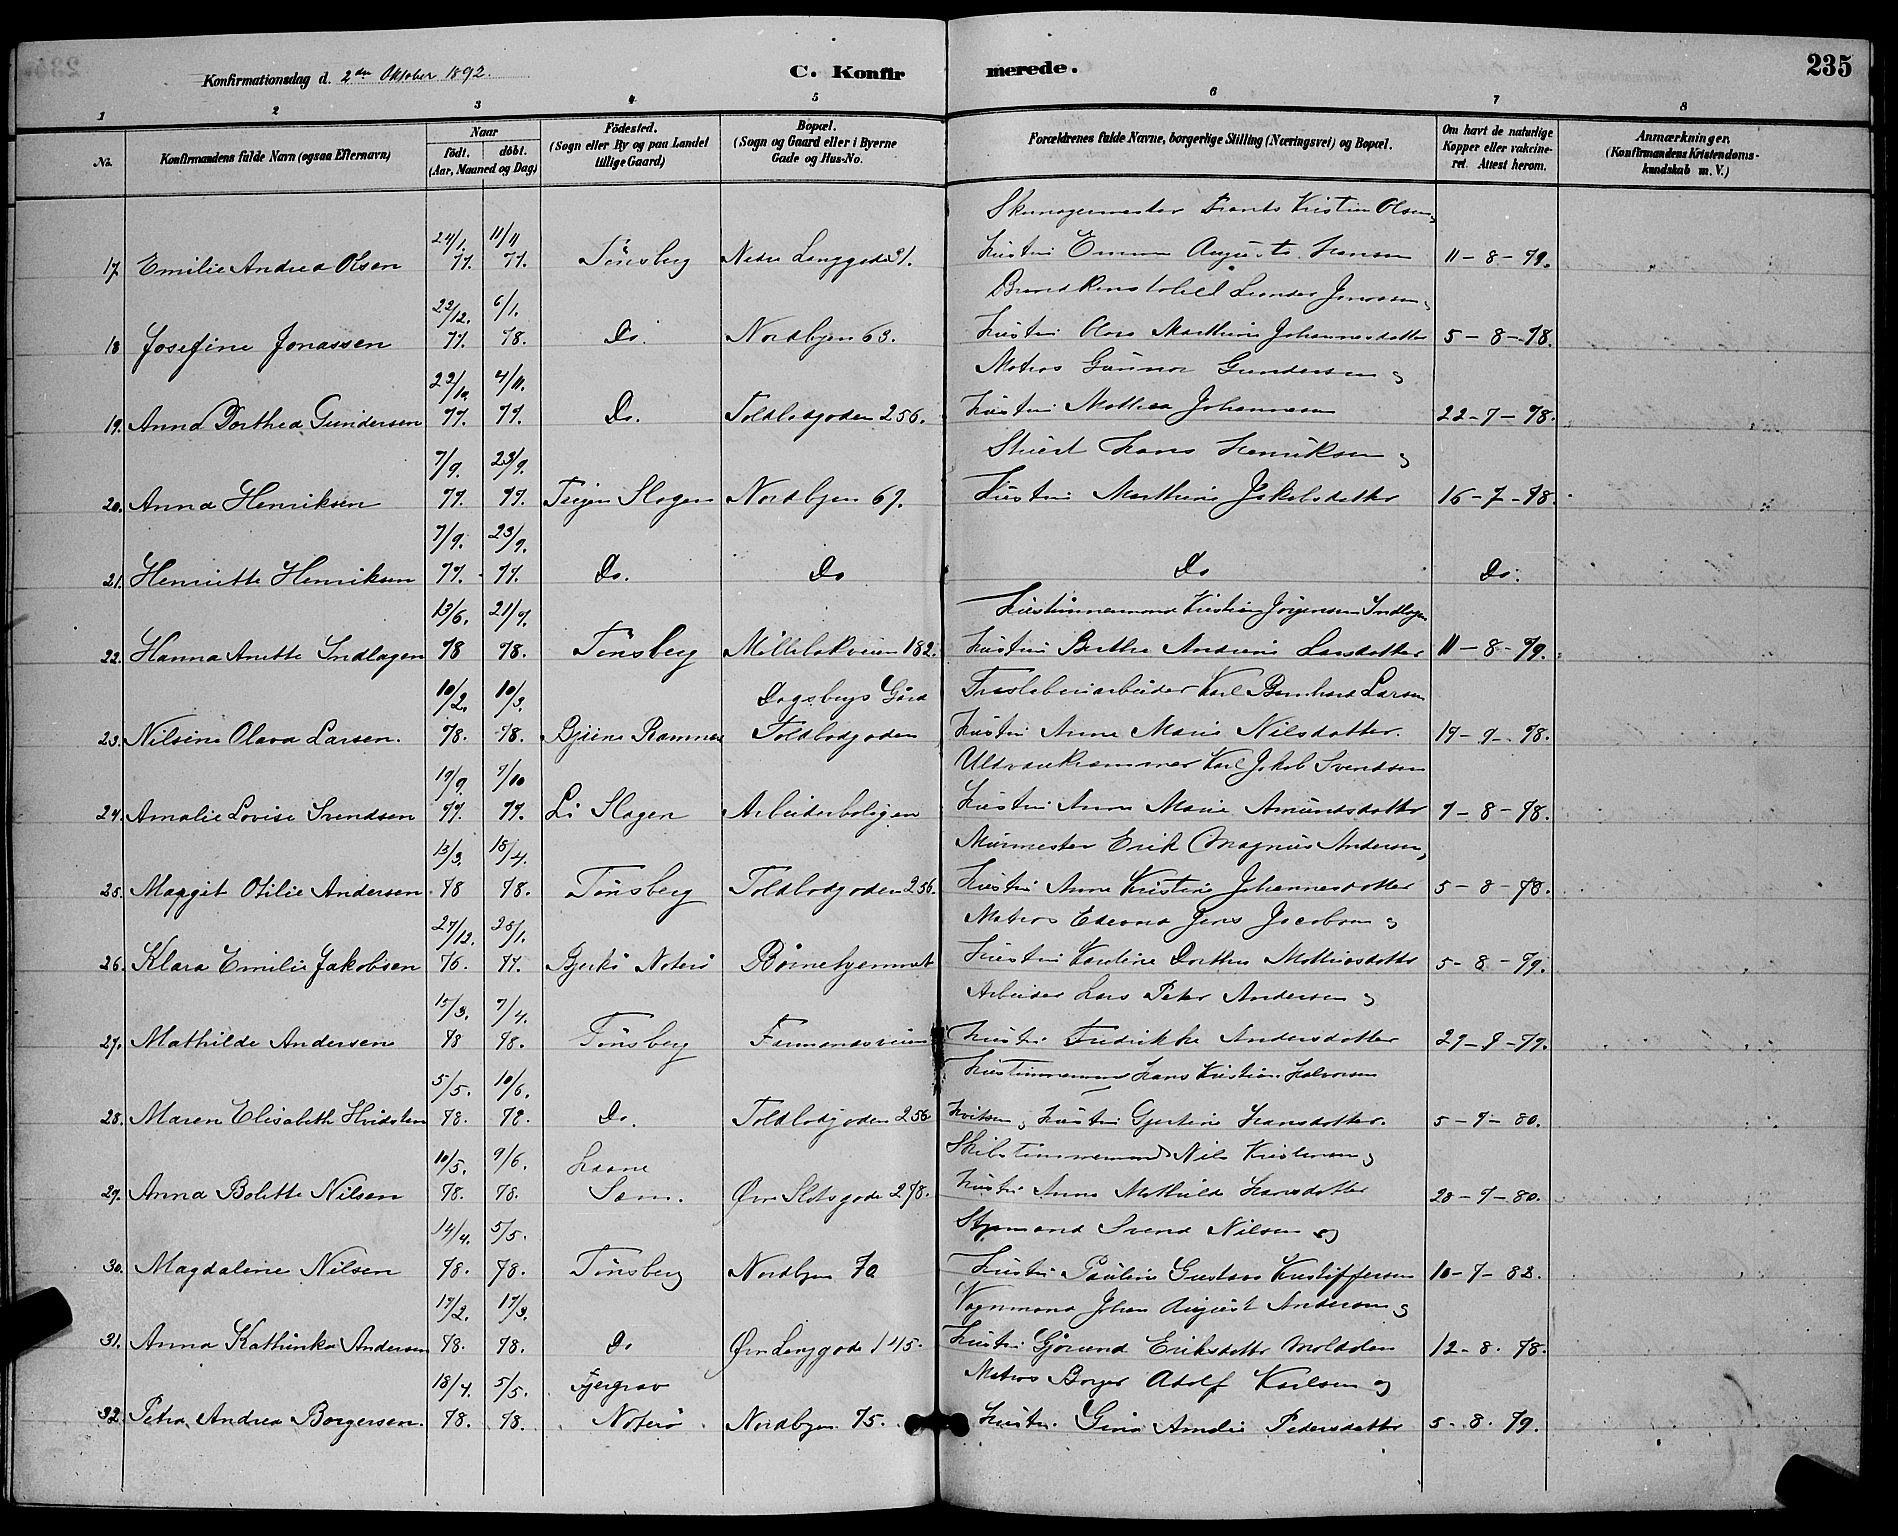 235
Konfirmationsdag d. 2den Oktober 1892.
C. Konfirmerede.
1 2 3 4 5 6 7 8
No.
Konfirmandens fulde Navn (ogsaa Efternavn)
Naar
födt. döbt.
(Aar, Maaned og Dag)
Födested.
(Sogn eller By og paa Landet
tillige Gaard)
Bopæl.
(Sogn og Gaard eller i Byerne
Gade og Hus-No.
Forældrenes fulde Navne, borgerlige Stilling (Næringsvei) og Bopæl.
Om havt de naturlige
Kopper eller vakcine-
ret. Attest herom.
Anmærkninger.
(Konfirmandens Kristendoms-
kundskab m. V.)
24/1. 11/11 Skomagermester Frants Kristian Olsen,
17. Emilie Andrea Olsen 77. 77. Tönsberg Nedre Langgade 31. Hustru Emma Augusta Hansen 11-8-79.
22/12. 6/1. Brandkonstabel Jonassen,
18 Josefine Jonassen 77. 78. Do. Nordbyen 63. Hustru Marthine Johannesdatter 5-8-78.
22/10. 4/11. Matros Gunnar Gundersen og
19. Anna Dorthea Gundersen 77. 77. Do. Toldbodgaden 256. Hustru Mathea Johannesen 22-7-78.
7/9. 23/9. Stuert Hans Henriksen og
20. Anna Henriksen 77. 77. Slagen Nordbyen 67. Hustru Mathine Jakobsdatter 16-7-78.
7/9. 23/9.
21. Henriette Henriksen 77. 77. Do. Do Do Do.
13/6. 21/7. Hustömmermand Kristian Jörgensen Indlagen
22. Hanna Anette Indlagen 78 78. Tönsberg Möllebakveien 182. Hustru Berthe Andrine Larsdatter 11-8-79.
10/2. 10/3. Dagsbergs Gård Karl Bernhard Larsen
23. Nilsine Olava Larsen. 78. 78. Ramnes Toldbodgaden Hustru Anne Marie Nilsdatter. 19-7-78.
19/9. 7/10 Karl Jakob Svendsen
24. Amalie Lovise Svendsen 77. 77. Li Slagen Arbeiderboligen Hustru Anne Marie Amundsdatter 7-8-78.
13/3. 18/4. Murmester Erik Magnus Andersen,
25. Margit Otilie Andersen 78 78. Tönsberg Toldbodgaden 256. Hustru Anne Kristine Johannesdatter 5-8-78.
27/12. 28/1. Matros Jens Jacobsen og
26. Klara Emilie Jakobsen 76. 77. Bjerkö Noterö Börnehjemmet Hustru Karoline Dorthea Mathiasdatter 5-8-79.
15/3. 7/4. Arbeider Lars Peter Andersen og
27. Mathilde Andersen 78 78. Tönsberg Farmandsveien Hustru Fredrikke Andersdatter 29-9-79.
5/5. 10/6. Hustömmermand Hans Kristian Halvorsen
28. Maren Elisabeth Hvidsten 78. 78. Do. Toldbodgaden 256 Hustru Gjertine Hansdatter. 5-7-80.
10/5. 9/6. Skibstömmermand Nils Kristensen og
29. Anna Bolette Nilsen 78. 78. Sem. Övre Slotsgade 278. Hustru Anne Mathilde Hansdatter 28-7-80.
14/4. 5/5. Styrmand Svend Nilsen og
30. Magdalene Nilsen 78. 78. Tönsberg Nordbyen 70 Hustru Pauline Gustava Kristoffersen 10-7-82.
17/2. 17/3. Vognmand Johan August Andersen og
31. Anna Kathinka Andersen 78. 78. Do Övre Langgade 145. Hustru Gjörund Eriksdatter 12-8. 78.
18/4. 5/5. Matros Borger Adolf Karlsen og
32 Petra Andrea Borgersen. 78. 78. Noterö Nordbyen 75. Hustru Gina Amalie Pedersdatter 5-8. 79.